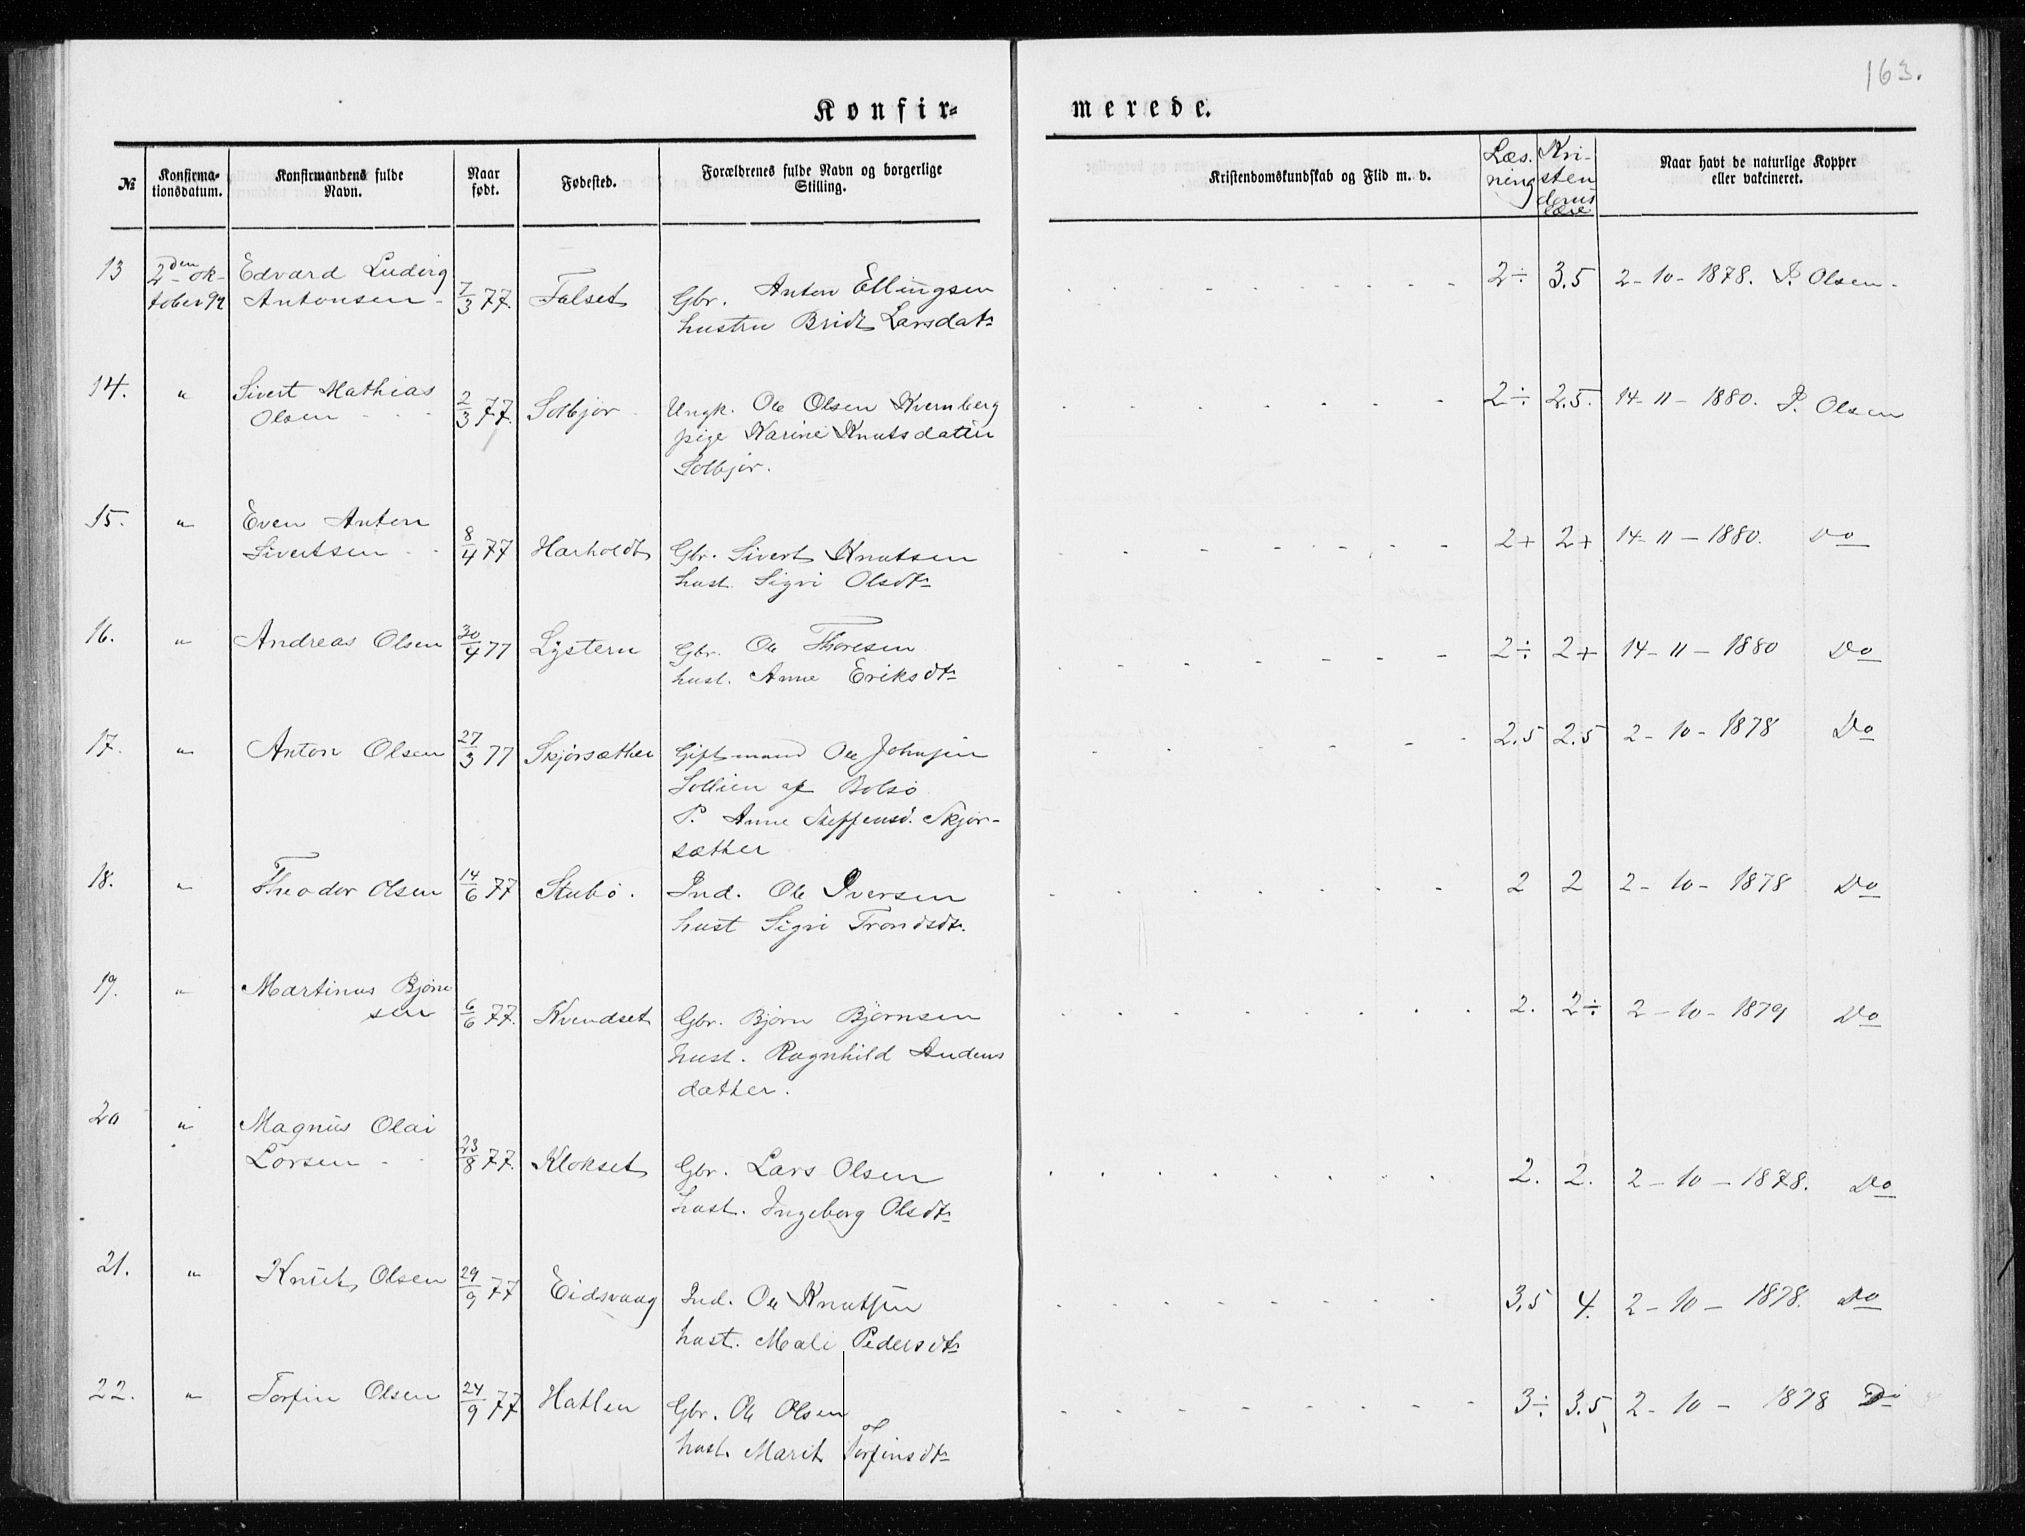 163.
Konfir-
merede.
№
Konfirma-
tionsdatum.
Konfirmandens fulde
Navn.
Naar
født.
Fødested.
Forældrenes fulde Navn og borgerlige
Stilling.
Kristendomskundskab og Flid m. v.
Læs-
ning
Kri-
sten-
doms
lære
Naar havt de naturlige Kopper
eller vakcineret.
13 2den ok- Edvard Ludvig
tober 92 Antonsen 7/3 77. Falset Gbr. Anton Ellingsen 2÷ 3.5 2-10-1878. P. Olsen.
hustru Bridt Larsdatr
14. " Sivert Mathias
Olsen 2/3 77. Solbjør Ungk. Ole Olsen Kvernberg 2÷ 2.5. 14-11-1880. P. Olsen
pige Karine Knutsdatter
Solbjør.
15. " Even Anton
Sivertsen 8/4 77 Harholdt Gbr. Sivert Knutsen 2+ 2+ 14-11-1880. Do
hust. Sigri Olsdtr
16. " Andreas Olsen 30/4 77 Lystern Gbr. Ole Thoresen 2÷ 2+ 14-11-1880 Do
hust. Anne Eriksdtr
17. " Anton Olsen 27/3 77 Skjørsæther Gift mand Ole Johnsen 2.5 2.5 2-10-1878 Do
Sollien af Bolsø
P. Anne Steffensd. Skjør-
sæther
18. " Theodor Olsen 14/6 77 Stubø. Ind. Ole Iversen 2 2 2-10-1878 Do
hust Sigri Trondsdtr.
19. " Martinus Bjørn
sen 6/6 77. Kvendset Gbr. Bjørn Bjørnsen 2. 2÷ 2-10-1879 Do
hust. Ragnhild Audens
datter.
20 " Magnus Olai
Larsen 23/8 77. Klokset Gbr. Lars Olsen 2. 2. 2-10-1878. Do
hust. Ingeborg Olsdtr
21. " Knut Olsen 29/9 77 Eidsvaag Ind. Ole Knutsen 3.5 4. 2-10-1878. Do
hust. Mali Pedersdtr
22. " Torfin Olsen 24/9 77 Hatlen Gbr. Ole Olsen 3÷ 3.5 2-10-1878 Do
hust. Marit Torfinsdtr